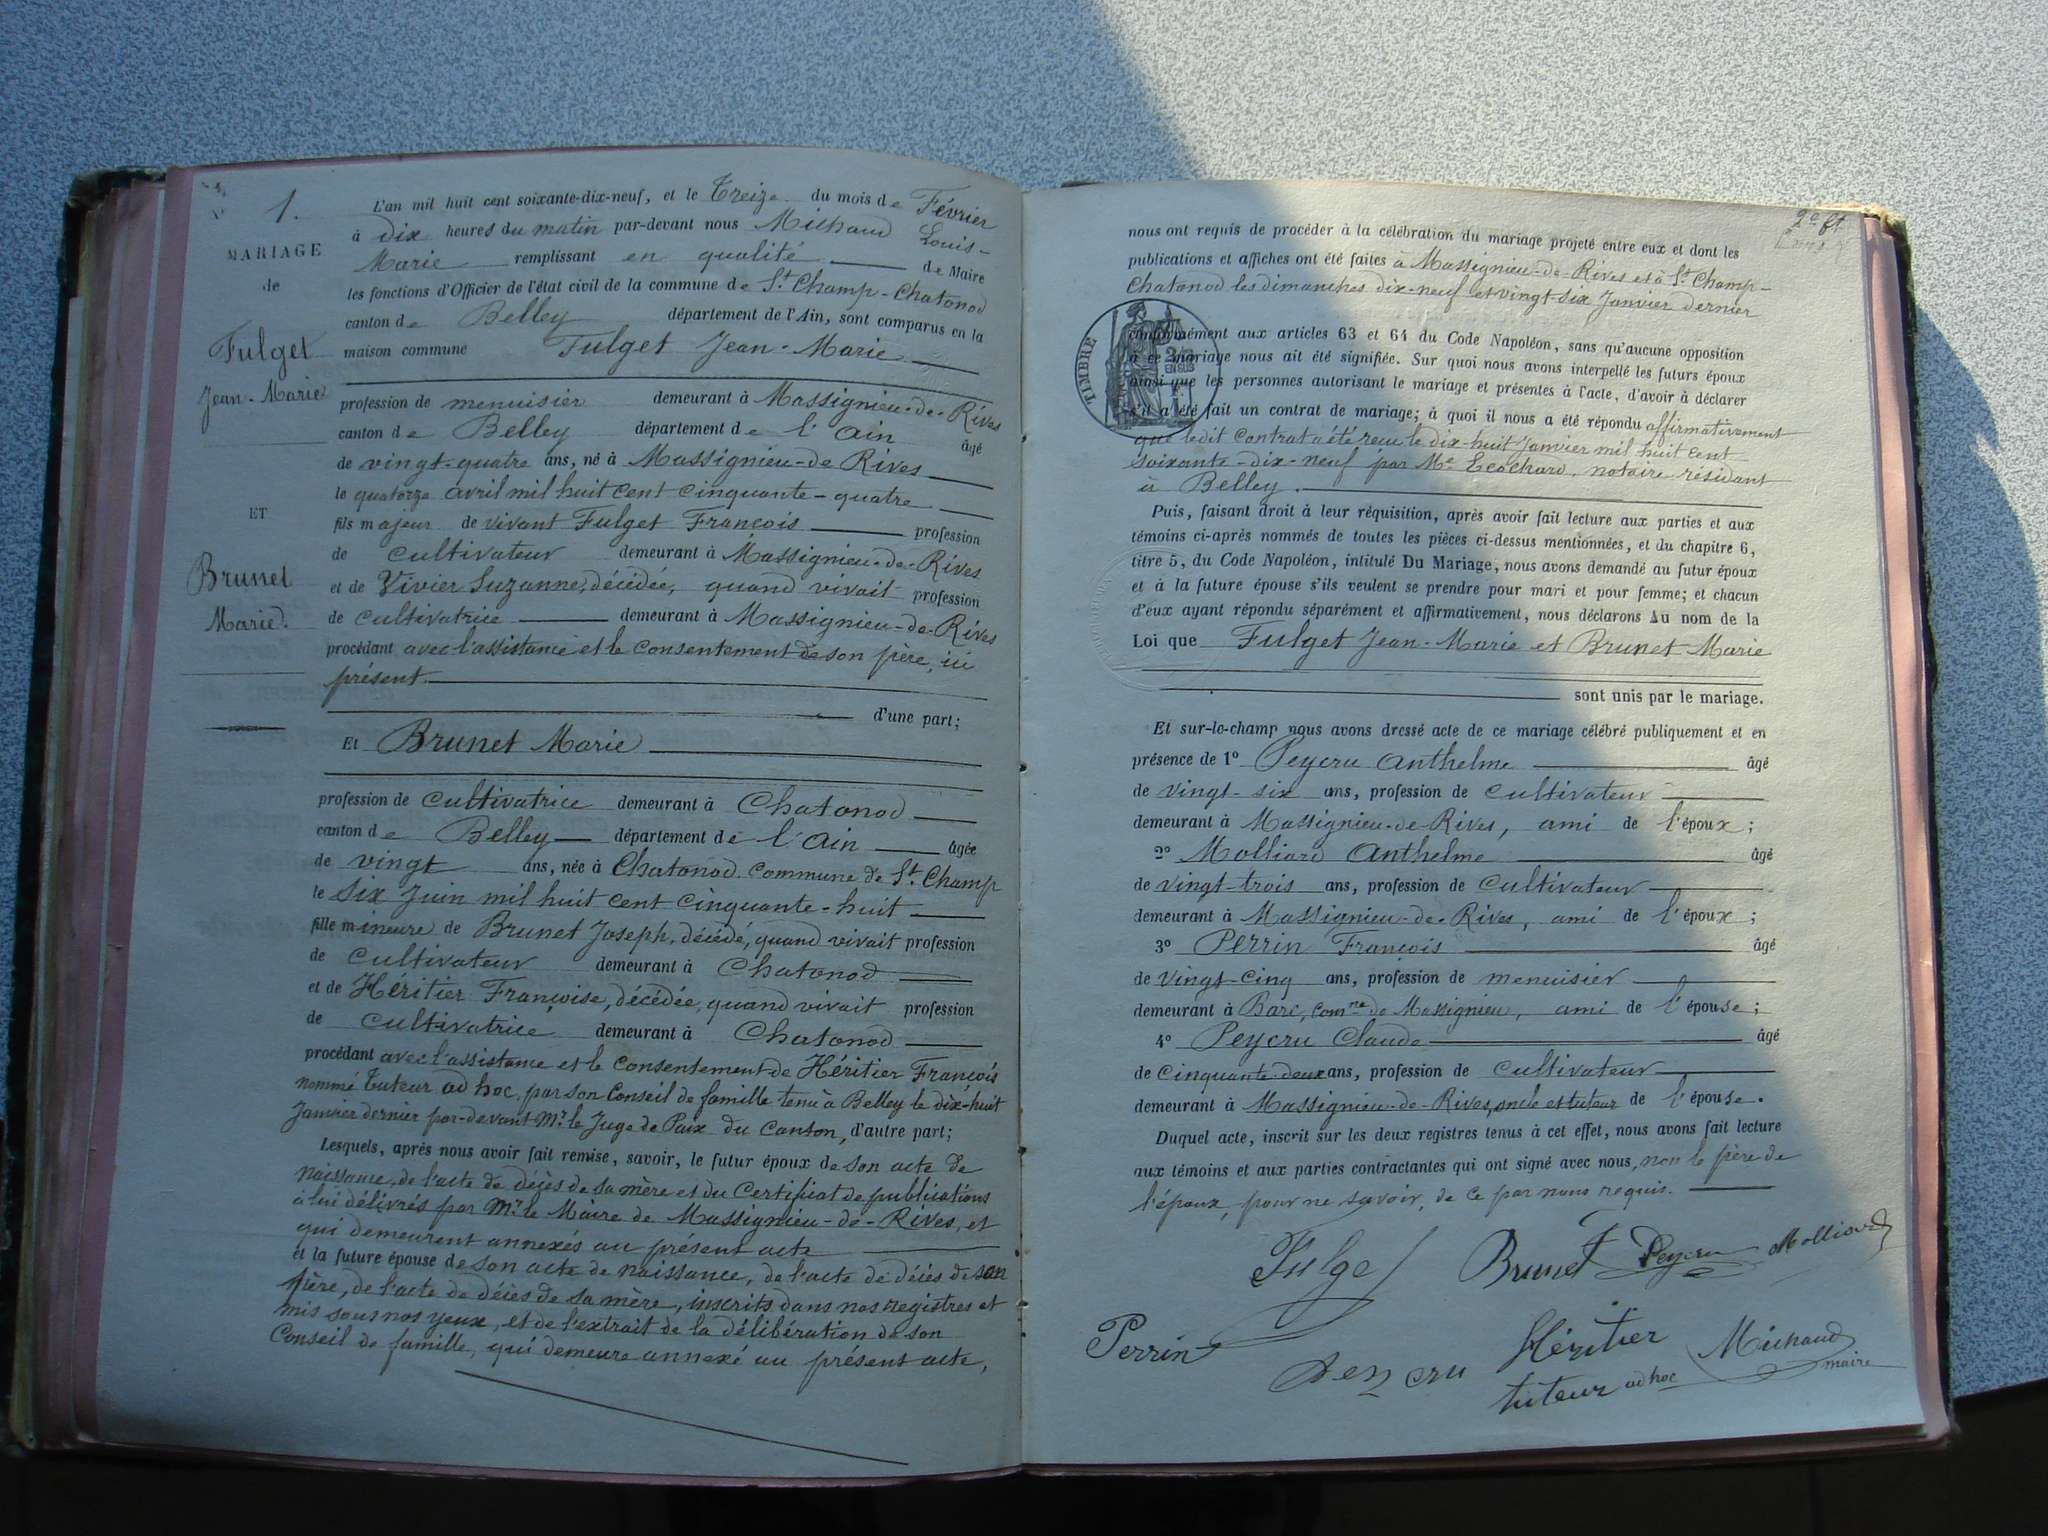 N° 1.
MARIAGE
de
Fulget
Jean-Marie
ET
Brunet
Marie.
L'an mil huit cent soixante-dix-neuf, et le Treize du mois de Février
à dix heures du matin par-devant nous Michaud Louis-
Marie remplissant en qualité de Maire
les fonctions d'Officier de l'état civil de la commune de St. Champ-Chatonod
canton de Belley département de l'Ain, sont comparus en la
maison commune Fulget Jean-Marie
profession de menuisier demeurant à Massignieu-de-Rives
canton de Belley département de l'Ain âgé
de vingt-quatre ans, né à Massignieu-de Rives
le quatorze avril mil huit cent cinquante-quatre
fils majeur de vivant Fulget François profession
de cultivateur demeurant à Massignieu-de-Rives
et de Vivier Suzanne, décédée, quand vivait profession
de cultivatrice demeurant à Massignieu-de-Rives
procédant avec l'assistance et le consentement de son père, ici
présent
d'une part;
Et Brunet Marie
profession de cultivatrice demeurant à Chatonod
canton de Belley département de l'Ain âgée
de vingt ans, née à Chatonod commune de St. Champ
le six Juin mil huit cent cinquante-huit
fille mineure de Brunet Joseph, décédé, quand vivait profession
de cultivateur demeurant à Chatonod
et de Héritier Françoise, décédée, quand vivait profession
de cultivatrice demeurant à Chatonod
procédant avec l'assistance et le consentement de Héritier François
nommé tuteur ad hoc, par son Conseil de famille tenu à Belley le dix-huit
Janvier dernier par-devant Mr. le Juge de Paix du Canton, d'autre part;
Lesquels, après nous avoir fait remise, savoir, le futur époux de son acte de
naissance, de l'acte de décès de sa mère et du Certificat de publications
à lui délivrés par Mr. le Maire de Massignieu-de-Rives, et
qui demeurent annexés au présent acte
et la future épouse de son acte de naissance, de l'acte de décès de son
père, de l'acte de décès de sa mère, inscrits dans nos registres et
mis sous nos yeux, et de l'extrait de la délibération de son
Conseil de famille, qui demeure annexé au présent acte,
2e ft
nous ont requis de procéder à la célébration du mariage projeté entre eux et dont les
publications et affiches ont été faites à Massignieu-de-Rives et à St. Champ-
Chatonod les dimanches dix-neuf et vingt-six Janvier dernier
TIMBRE
conformément aux articles 63 et 64 du Code Napoléon, sans qu'aucune opposition
à ce mariage nous ait été signifiée. Sur quoi nous avons interpellé les futurs époux
ainsi que les personnes autorisant le mariage et présentes à l'acte, d'avoir à déclarer
s'il a été fait un contrat de mariage; à quoi il nous a été répondu affirmativement
que ledit Contrat a été reçu le dix-huit Janvier mil huit cent
soixante-dix-neuf par Me notaire résidant
à Belley.
Puis, faisant droit à leur réquisition, après avoir fait lecture aux parties et aux
témoins ci-après nommés de toutes les pièces ci-dessus mentionnées, et du chapitre 6,
titre 5, du Code Napoléon, intitulé Du Mariage, nous avons demandé au futur époux
et à la future épouse s'ils veulent se prendre pour mari et pour femme; et chacun
d'eux ayant répondu séparément et affirmativement, nous déclarons Au nom de la
Loi que Fulget Jean-Marie et Brunet Marie
sont unis par le mariage.
Et sur-le-champ nous avons dressé acte de ce mariage célébré publiquement et en
présence de 1° Peycru Anthelme âgé
de vingt-six ans, profession de cultivateur
demeurant à Massignieu-de Rives, ami de l'époux;
2° Molliard Anthelme âgé
de vingt-trois ans, profession de cultivateur
demeurant à Massignieu-de-Rives, ami de l'époux;
3° Perrin François âgé
de vingt-cinq ans, profession de menuisier
demeurant à Barc, comne de Massignieu, ami de l'épouse;
4° Peycru Claude âgé
de cinquante-deux ans, profession de cultivateur
demeurant à Massignieu-de-Rives, oncle et tuteur de l'épouse.
Duquel acte, inscrit sur les deux registres tenus à cet effet, nous avons fait lecture
aux témoins et aux parties contractantes qui ont signé avec nous, non le père de
l'époux, pour ne savoir, de ce par nous requis.
Fulget Brunet Peycru Molliard
Perrin Peycru Héritier Michaud
tuteur ad hoc maire